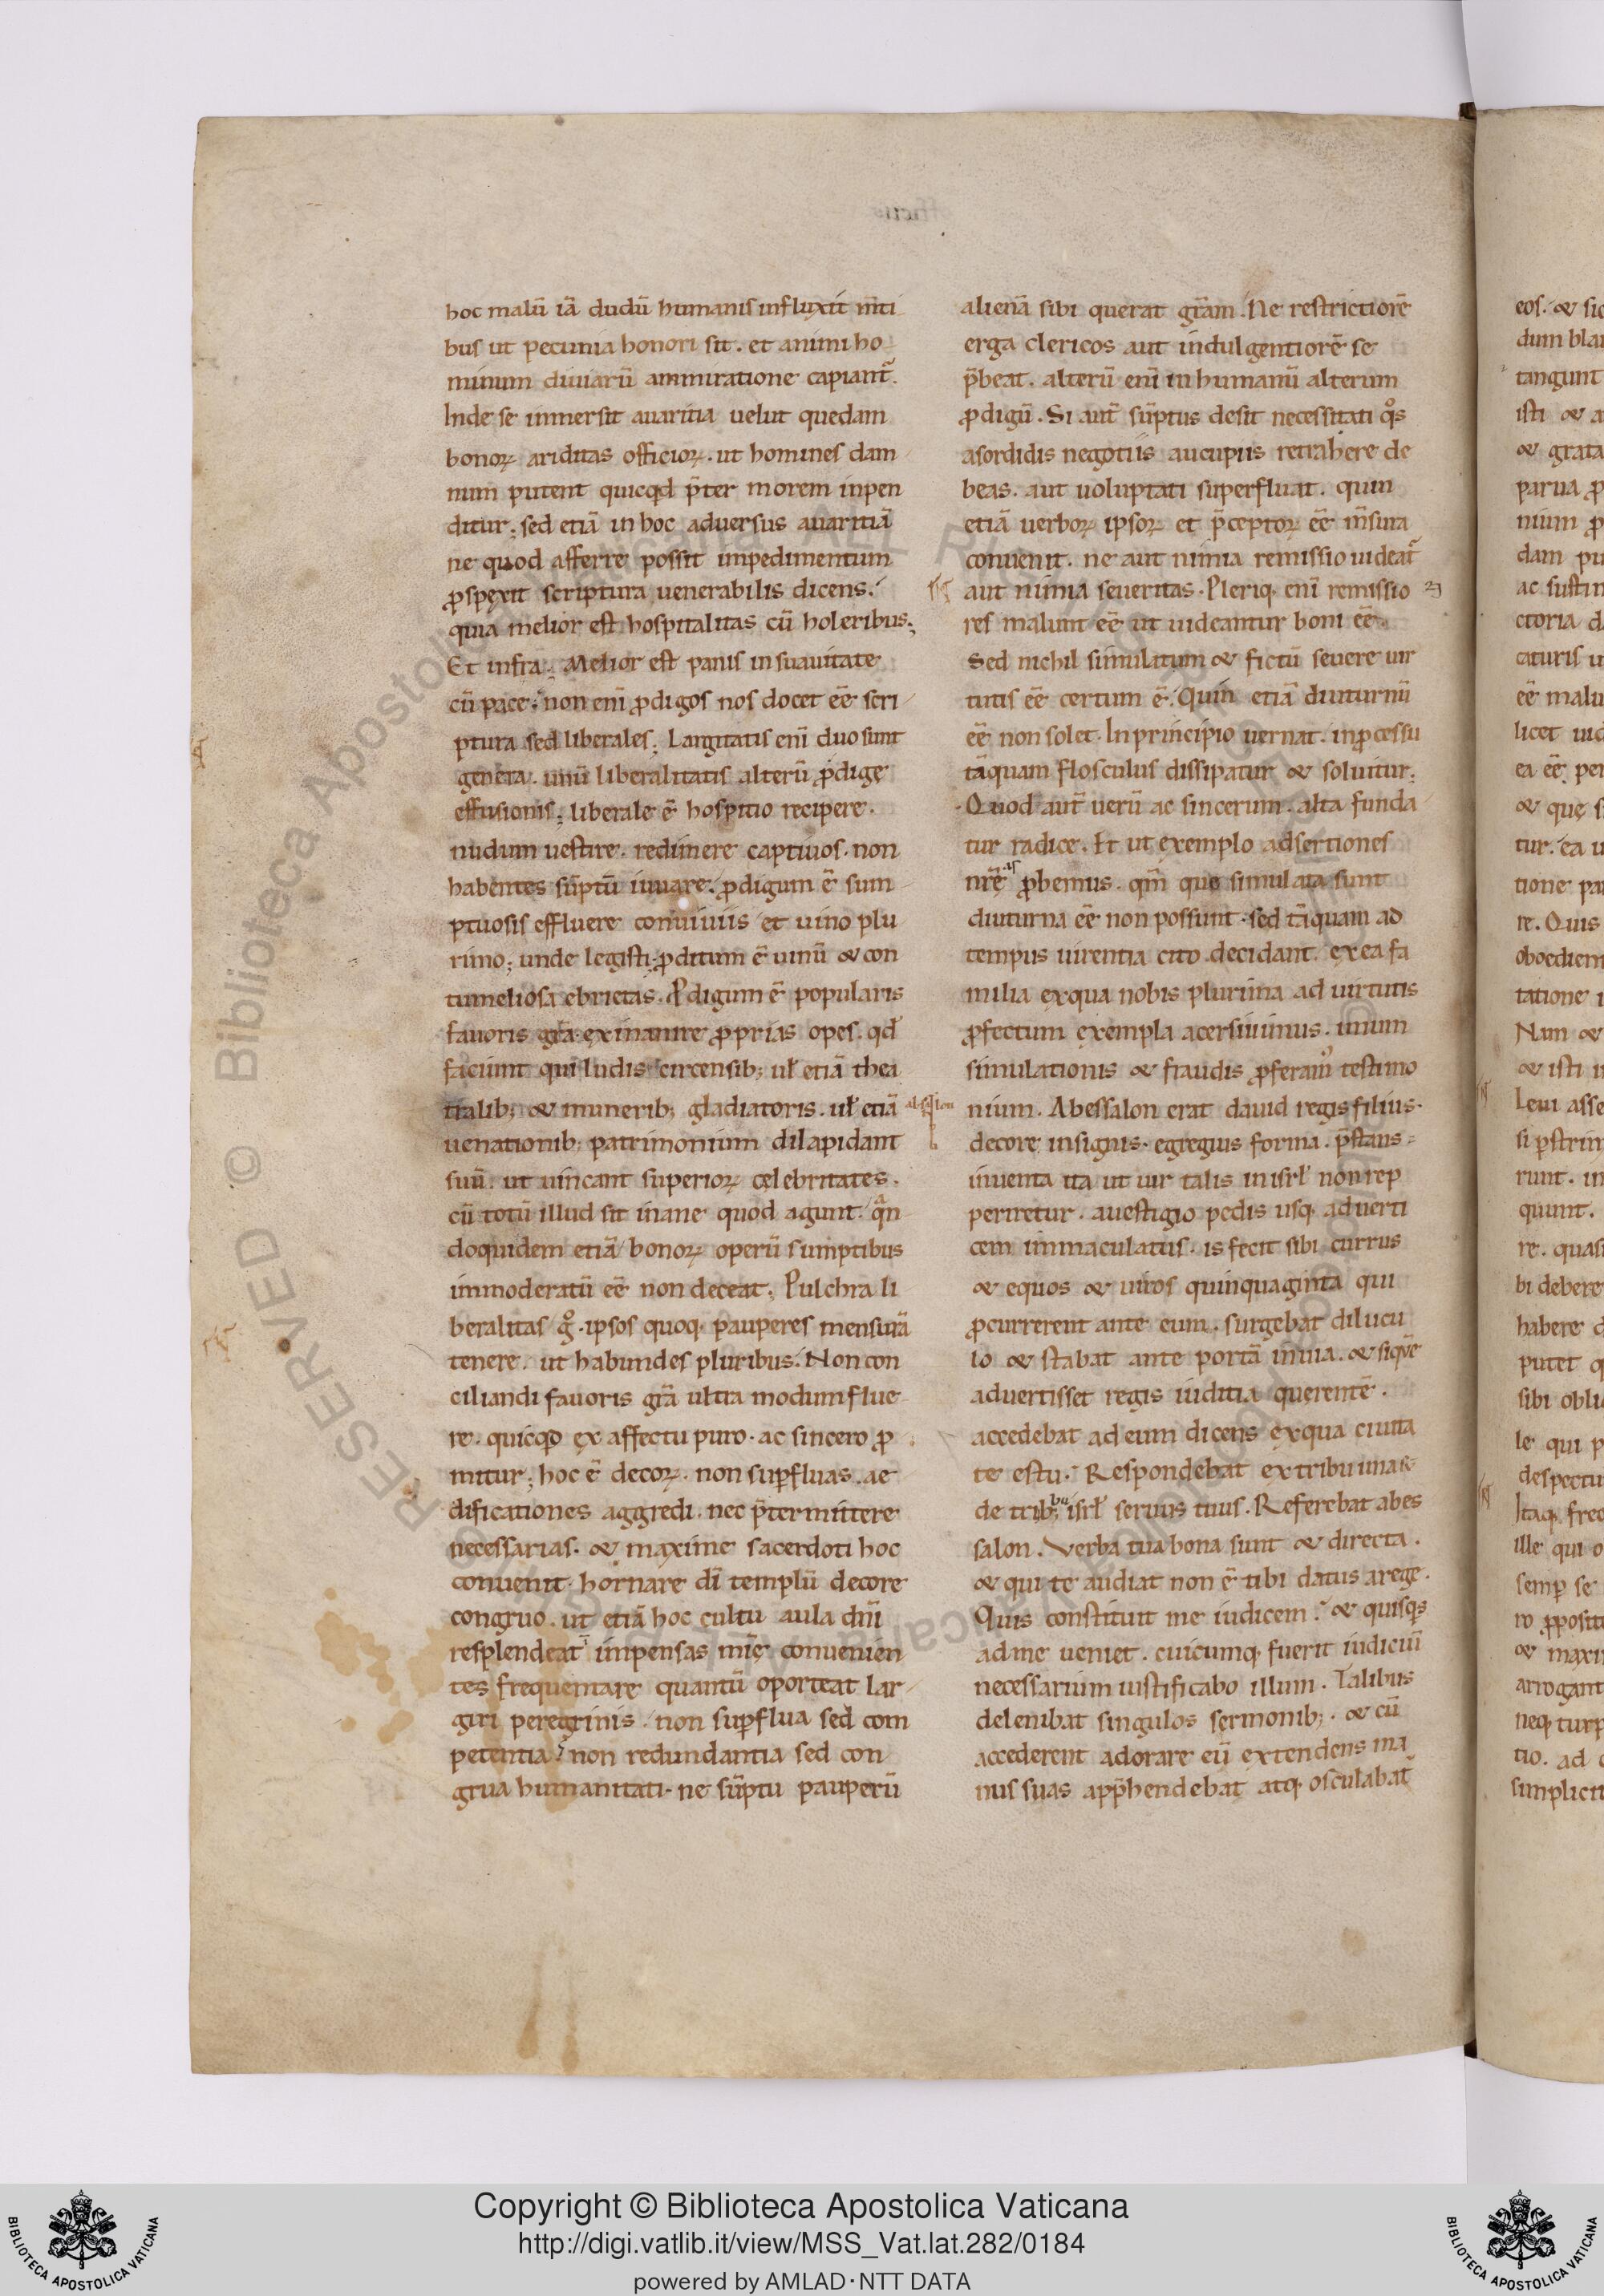 hoc malū iā dudū humanis influxit mti
bus ut pecunia honori sit. et animi ho
minum diuiarū ammiratione capiant̃.
Inde se inmersit auaritia uelut quedam
bonoꝝ ariditas officioꝝ. ut homines dam
num putent quicqd p̄ter morem inpen
ditur; sed etiā in hoc aduersus auaritiā
ne quod afferre possit impedimentum
ꝓspexit scriptura uenerabilis dicens.
quia melior est hospitalitas cū holeribus;
Et infra. Melior est panis in suauitate
cū pace. non enī ꝓdigos nos docet eē scri
ptura sed liberales; Largitatis enī duo sunt
genera. unū liberalitatis alterū ꝓdigę
effusionis; liberale ē hospitio recipere.
nudum uestire. redimere captiuos. non
habentes sūptū iuuare. ꝓdigum ē sum
ptuosis effluere conuiuiis et uino plu
rimo; unde legisti; ꝓditum ē uinū & con
tumeliosa ebrietas. Ꝓdigum ē popularis
fauoris grā exinanire ꝓprias opes. qđ
faciunt qui ludis circensib; uł etiā thea
tralib; & munerib; gladiatoris. uł etiā
uenationib; patrimonium dilapidant
suū. ut uincant superioꝝ celebritates.
cū totū illud sit inane quod agunt. qn
doquidem etiā bonoꝝ operū sumptibus
immoderatū eē non deceat; Pulchra li
beralitas g̊. ipsos quoq; pauperes mensurā
tenere. ut habundes pluribus. Non con
ciliandi fauoris grā ultra modum flue
re. quicqd ex affectu puro. ac sincero ꝓ
mitur; hoc ē decoꝝ. non supfluas. ae
dificationes aggredi. nec p̄termittere
necessarias. & maxime sacerdoti hoc
conuenit. hornare dī templū decore
congruo. ut etiā hoc cultu aula dnī
resplendeat impensas mię conuenien
tes frequentare quantū oporteat lar
giri peregrinis. non supflua sed com
petentia. non redundantia sed con
grua humanitati. ne sūptu pauperū
alienā sibi querat grām. Ne restrictiorē
erga clericos aut indulgentiorē se
p̄beat. alterū enī inhumanū alterum
ꝓdigū. Si aut̃ sūptus desit necessitati qͦs
asordidis negotiis aucupiis retrahere de
beas. aut uoluptati superfluat. quin
etiā uerboꝝ ipsoꝝ et p̄ceptoꝝ eē m̄sura
conuenit. ne aut nimia remissio uideat̃
aut nimia seueritas. Pleriq; enī remissio
res malunt eē ut uideantur boni eē.
Sed nichil simulatum & fictū seuere uir
tutis eē certum ē. Quin etiā diuturnū
eē non solet. In principio uernat. inꝓcessu
tāquam flosculus dissipatur & soluitur.
Quod aut̃ uerū ac sincerum. alta funda
tur radice. Et ut exemplo adsertiones
nrē as ꝓbemus. qm̄ que simulata sunt
diuturna eē non possunt. sed tāquam ad
tempus uirentia cito decidant. ex ea fa
milia exqua nobis plurima ad uirtutis
ꝓfectum exempla acersiuimus. unum
simulationis & fraudis ꝓferamꝰ testimo
absalon
nium. Abessalon erat dauid regis filius.
decore insignis. egregius forma. p̄stans
inuenta ita ut uir talis in isrł non rep
periretur. auestigio pedis usq; aduerti
cem immaculatus. is fecit sibi currus
& equos & uiros quinquaginta qui
ꝓcurrerent ante eum. surgebat dilucu
lo & stabat ante portā inuia. & siquē
aduertisset regis iuditia querentē.
accedebat ad eum dicens exqua ciuita
te es tu. Respondebat ex tribu una
de trib; bu isrł seruus tuus. Referebat abes
salon. Verba tua bona sunt & directa.
& qui te audiat non ē tibi datus arege.
Quis constituit me iudicem. & quisqs
adme ueniet. cuicumq; fuerit iudiciū
necessarium iustificabo illum. Talibus
delenibat singulos sermonib;. & cū
accederent adorare eū extendens ma
nus suas app̄hendebat atq; osculabat̃
Copyright © Biblioteca Apostolica Vaticana
http://digi.vatlib.it/view/MSS_Vat.lat.282/0184
powered by AMLAD·NTT DATA
BIBLIOTECA APOSTOLICA VATICANA
BIBLIOTECA APOSTOLICA VATICANA